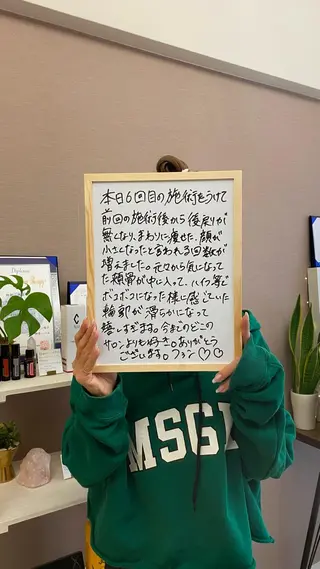 本日6回目の施術をうけて
前回の施術後から後戻りが
無くなり、まわりに痩せた、顔が
小さくなったと言われる回数が
増えました。元々から気になって
た頬骨が中に入って、ハイフ等で
ボコボコになった様に感じていた
輪郭が滑らかになって
嬉しすぎます。今までのどこの
サロンよりも好き。ありがとう
ございます。ファン♡♡
MSGI